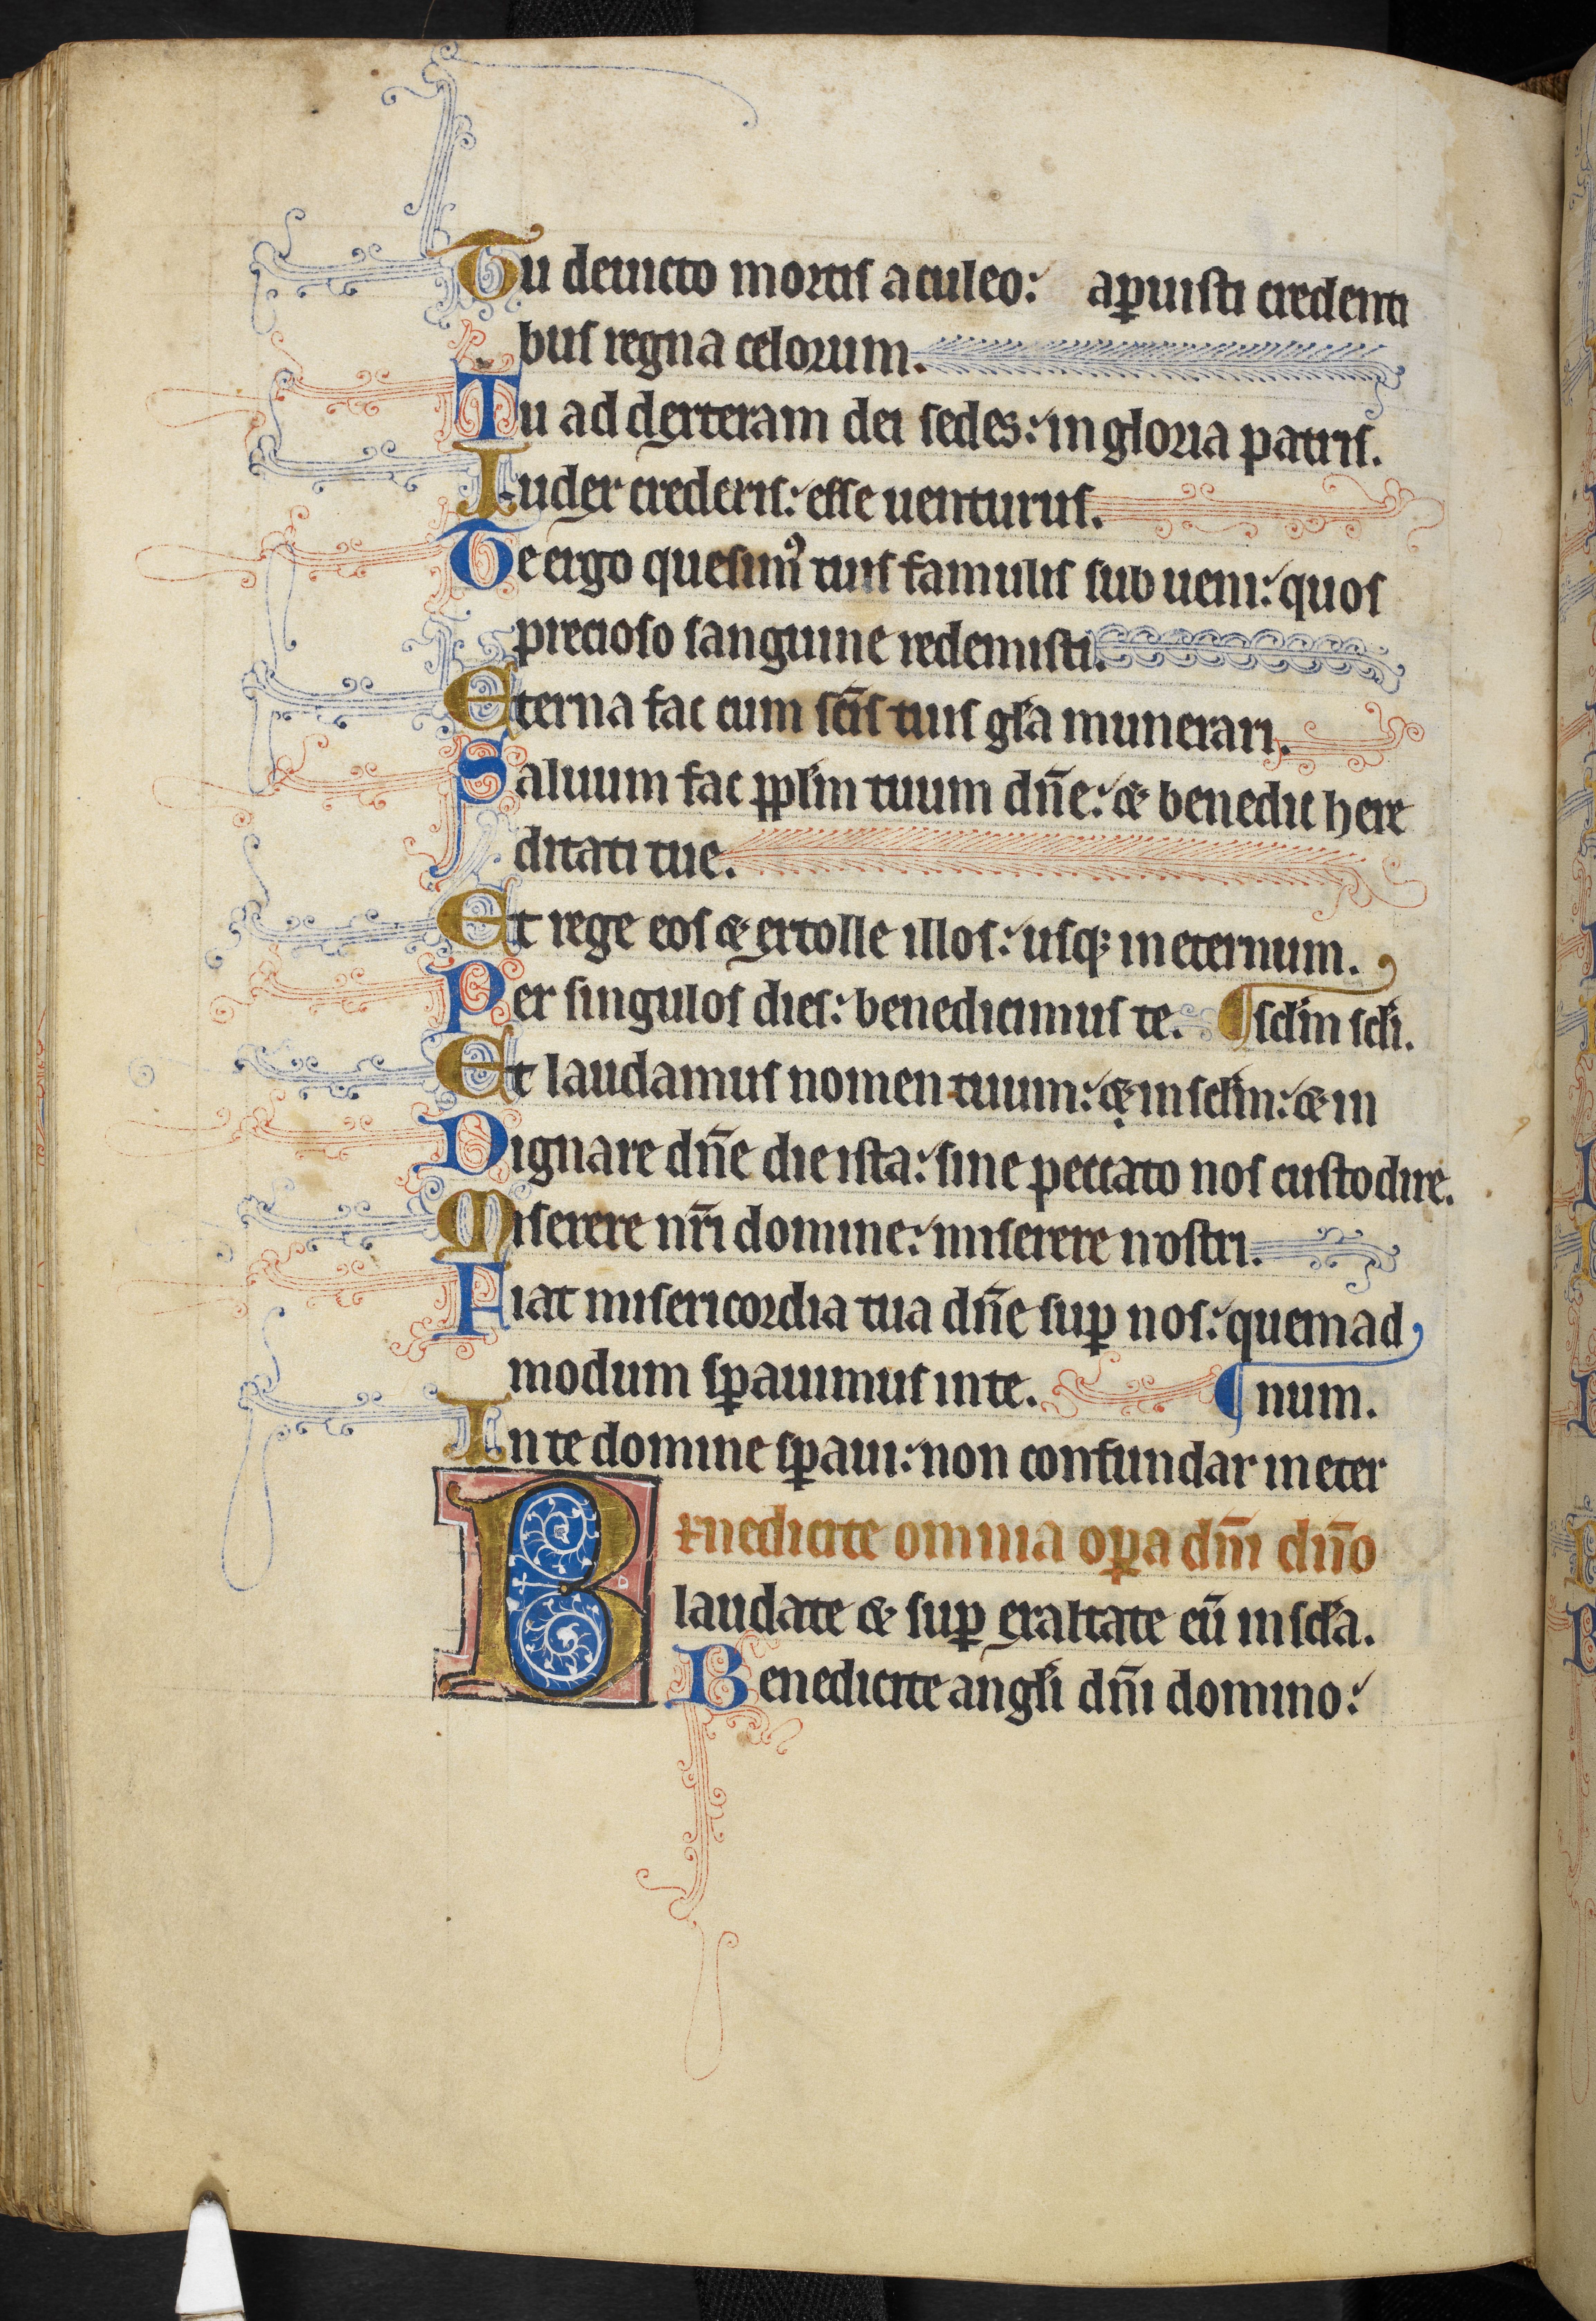 Tu deuicto mortis aculeo: aꝑuisti credenti
bus regna celorum.
Tu ad dexteram dei sedes: in gloria patris.
Iudex crederis: esse uenturus.
Te ergo quesumꝰ tuis famulis sub ueni: quos
precioso sanguine redemisti.
Eterna fac cum sc̄is tuis gl̄a munerari.
Saluum fac ppl̄m tuum dn̄e: & benedic here
ditati tue.
Et rege eos & extolle illos: usqꝫ in eternum.
Per singulos dies: benedicimus te. ¶ scl̄m scl̄i.
Et laudamus nomen tuum: & in scl̄m: & in
Dignare dn̄e die ista: sine peccato nos custodire.
Miserere nr̄i domine: miserere nostri.
Fiat misericordia tua dn̄e suꝑ nos: quemad
modum sꝑauimus in te. ¶ num.
In te domine sꝑaui: non confundar in eter
Benedicite omnia oꝑa dn̄i dn̄o
laudate & suꝑ exaltate eū in scl̄a.
Benedicite angl̄i dn̄i domino: